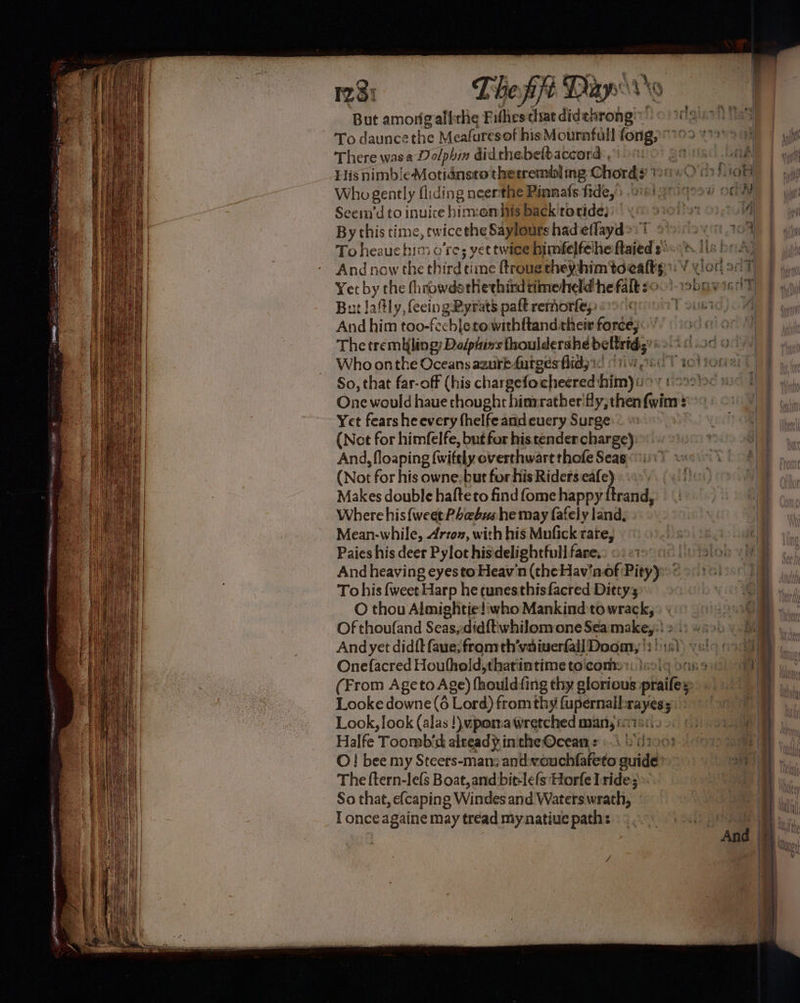 128 The fift Day
But among all the Fishes that did throng
To daunce the Measures of his Mournfull song,
There was a Dolphin did the best accord
His nimble Motions to the trembling Chords
Who gently sliding neer the Pinnass side,
Seem'd to inuite him on his back to ride,
By this time, twice the Saylours had essayd
To heaue him o're; yet twice himselfe he staied
And now the third time stroue they him to cast;
Yet by the shrowds the third time held he fast:
But lastly, seeing Pyrats past remorse,
And him too-feeble to withstand their force,
The trembling Dolphins shoulders he bestrid,
Who on the Oceans azure surges slid,
So, that far-off (his charge so cheered him)
One would haue thought him rather fly, then swim:
Yet fears he euery shelfe and euery Surge
(Not for himselfe, but for his tender charge)
And, sloaping swiftly overthwart those Seas
(Not for his owne, but for his Riders ease)
Makes double haste to find some happy strand,
Where his sweet Phœbus he may safely land.
Mean-while, Arion, with his Musick rare,
Paies his deer Pylot his delightfull fare.
And heaving eyes to Heav'n (the Hav'n of Pity)
To his sweet Harp he tunes this sacred Ditty;
O thou Almightie! who Mankind to wrack,
Of thousand Seas, didst whilom one Sea make,
And yet didst saue, from th'vniuersall Doom,
One sacred Houshold, that in time to come
(From Age to Age) should sing thy glorious praise;
Looke downe (ô Lord) from thy supernall rayes;
Look, look (alas!) vpon a wretched man,
Halfe Toomb'd already in the Ocean:
O! bee my Steers-man; and vouchsafe to guide
The stern-less Boat, and bit-less Horse I ride;
So that, escaping Windes and Waters wrath,
I once againe may tread my natiue path:
And